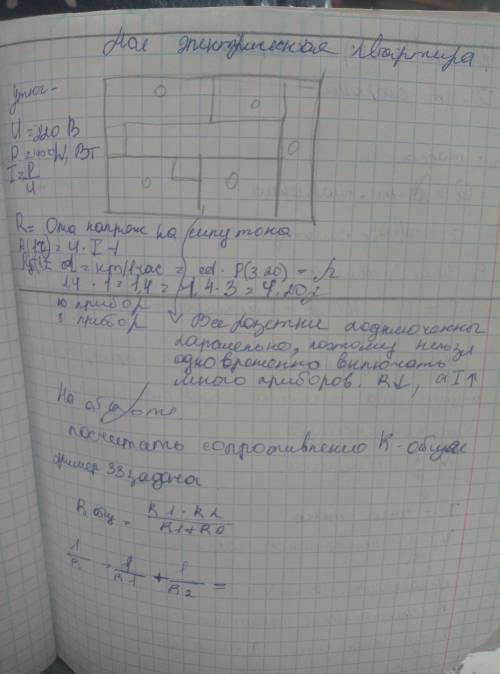 Моя электрическая квартира
утюг -
U = 220 В
I = P/U
R = Она напряж на силу тока
10 прибор
3 прибор
Все розетки подключены
паралельно, поэтому нельзя
одновременно включать
много приборов. R↓, а I↑
На обороте
посчитать сопротивление R - общее
пример 33 задача
R общ = R1 · R2 / R1 + R2
1/R = 1/R1 + 1/R2 =